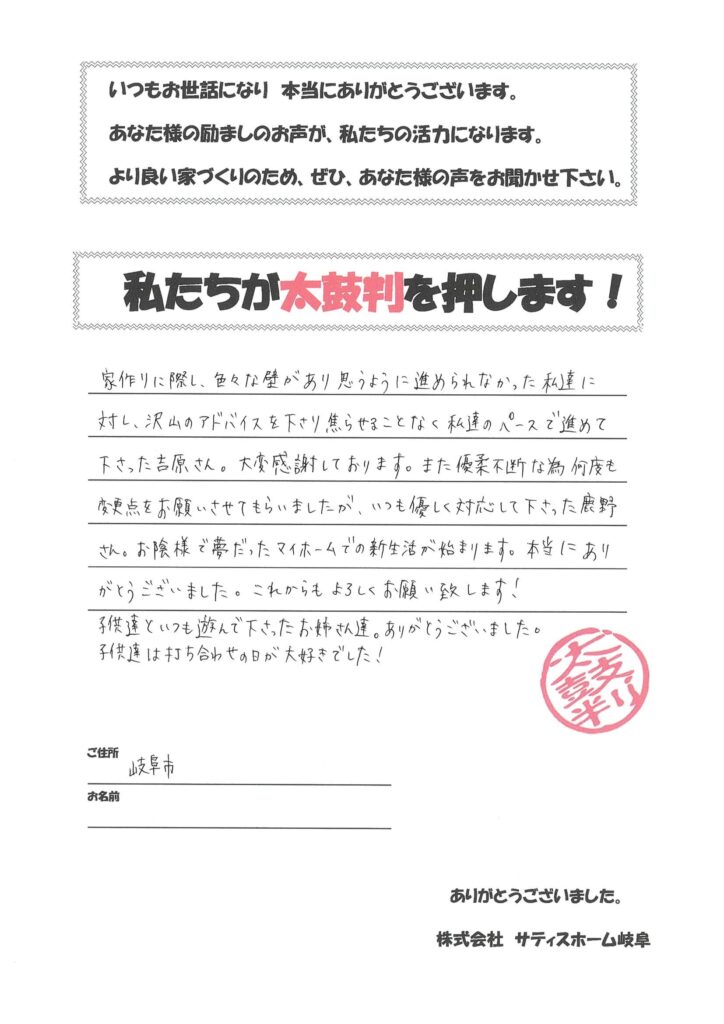 いつもお世話になり 本当にありがとうございます。
あなた様の励ましのお声が、私たちの活力になります。
より良い家づくりのため、ぜひ、あなた様の声をお聞かせ下さい。
私たちが太鼓判を押します！
家作りに際し、色々な壁があり思うように進められなかった私達に
対し、沢山のアドバイスを下さり焦らせることなく私達のペースで進めて
下さった吉原さん。大変感謝しております。また優柔不断な為何度も
変更点をお願いさせてもらいましたが、いつも優しく対応して下さった鹿野
さん。お陰様で夢だったマイホームでの新生活が始まります。本当にあり
がとうございました。これからもよろしくお願い致します！
子供達といつも遊んで下さったお姉さん達。ありがとうございました。
子供達は打ち合わせの日が大好きでした！
太鼓判
ご住所 岐阜市
お名前
ありがとうございました。
株式会社 サティスホーム岐阜